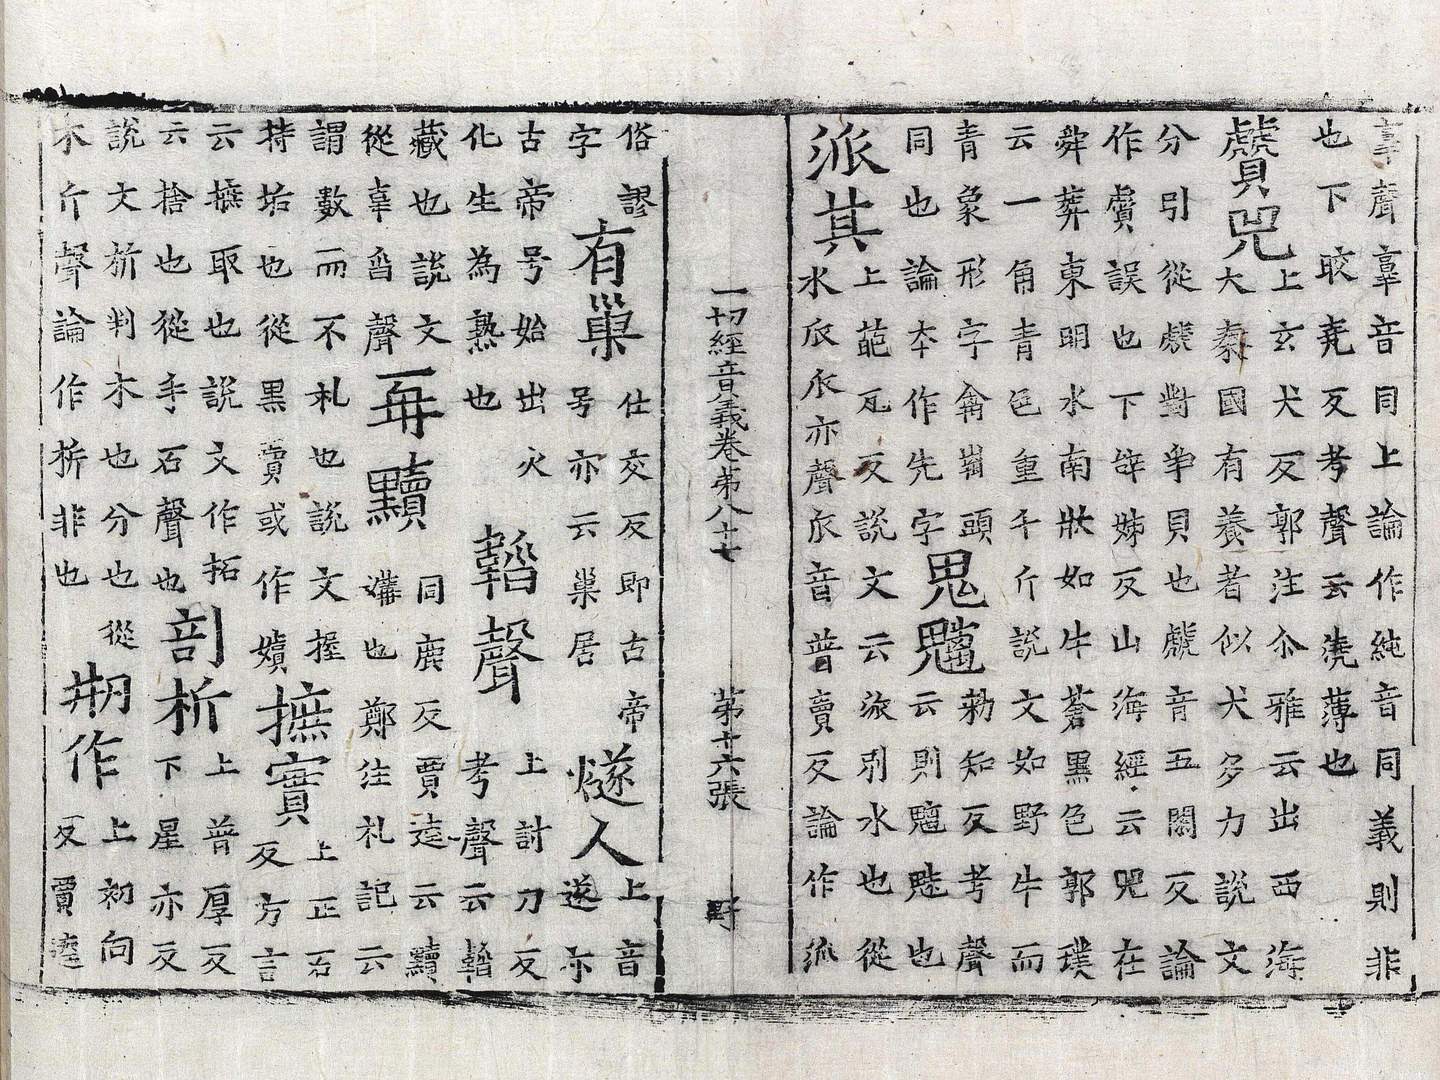 辜聲辜音同上論作純音同義則非
也下咬堯反考聲云澆薄也
贙兕
上玄犬反郭注尒雅云出西海
大秦國有養者似犬多力說文
分引從虤對爭貝也虤音五閑反論
作贙誤也下辝姊反山海經云兕在
舜葬東明水南狀如牛蒼黑色郭璞
云一角青色重千斤說文如野牛而
青象形字禽嵓頭
同也論本作先字
鬼魑
勑知反考聲
云則魑魅也
派其
上葩瓦反說文云派別水也從
水𠂢𠂢亦聲𠂢音普賣反論作流
一切經音義卷第八十七 第十六張 野
俗謬
字
有巢
仕交反即古帝
号亦云巢居
燧人
上音
遂亦
古帝号始出火
化生為熟也
鞱聲
上討刀反
考聲云鞱
藏也說文
從韋舀聲
再黷
同鹿反賈逵云黷
媾也鄭注礼記云
謂數而不札也說文握
持垢也從黑賣或作嬻
摭實
上正石
反方言
云摭取也說文作拓
云捨也從手石聲也
剖析
上普厚反
下星亦反
說文析判木也分也從
木斤聲論作㭊非也
刱作
上初向
反賈逵